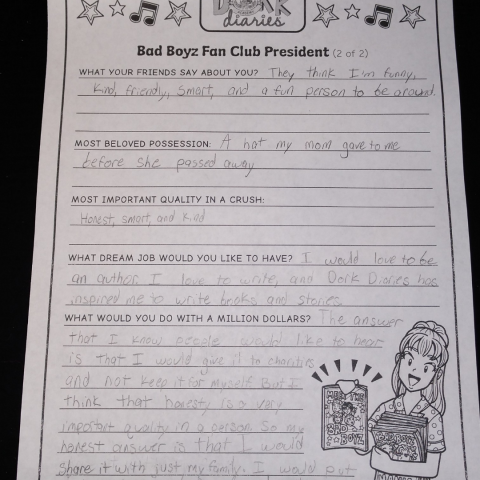 DORK
diaries
Bad Boyz Fan Club President (2 of 2)
WHAT YOUR FRIENDS SAY ABOUT YOU? They think I'm funny,
kind, friendly, smart, and a fun person to be around.
MOST BELOVED POSSESSION: A hat my mom gave to me
before she passed away
MOST IMPORTANT QUALITY IN A CRUSH:
Honest, smart, and kind
WHAT DREAM JOB WOULD YOU LIKE TO HAVE? I would love to be
an author. I love to write, and Dork Diaries has
inspired me to write books and stories
WHAT WOULD YOU DO WITH A MILLION DOLLARS? The answer
that I know people would like to hear
is that I would give it to charities
and not keep it for myself. But I
think that honesty is a very
important quality in a person. So my
honest answer is that I would
share it with just my family. I would put
MEET THE
BAD
BOYZ